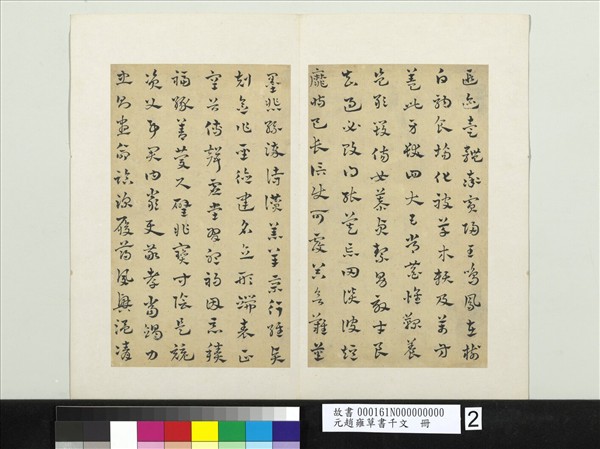 遐邇壹體率賓歸王鳴鳳在樹
白駒食場化被草木賴及萬方
蓋此身髮四大五常恭惟鞠養
豈敢毀傷女慕貞絜男效才良
知過必改得能莫忘罔談彼短
靡恃己長信使可覆器欲難量
墨悲絲染詩讚羔羊景行維賢
剋念作聖德建名立形端表正
空谷傳聲虛堂習聽禍因惡積
福緣善慶尺璧非寶寸陰是競
資父事君曰嚴與敬孝當竭力
忠則盡命臨深履薄夙興溫凊
故書 000161N000000000
元趙雍草書千文 冊
2